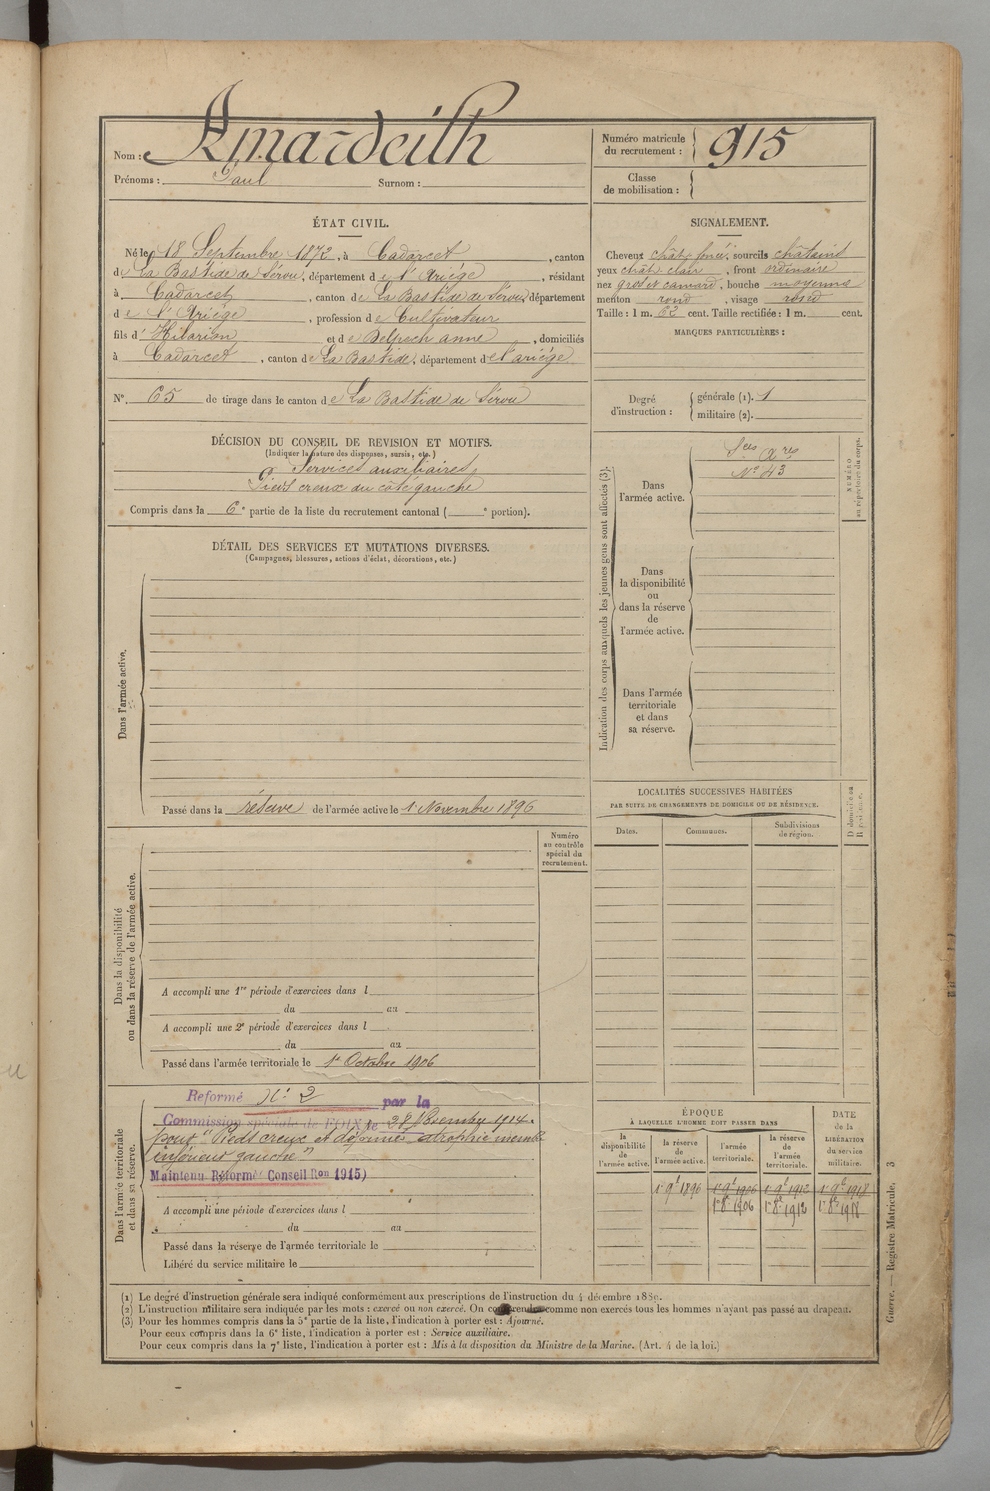 Nom : Amardeilh
Prénoms : Paul Surnom :
Numéro matricule du recrutement : 915
Classe de mobilisation :
ÉTAT CIVIL.
Né le 18 Septembre 1872, à Cadarcet, canton
de La Bastide de Sérou, département de l'Ariège, résidant
à Cadarcet, canton de La Bastide de Sérou, département
de l'Ariège, profession de Cultivateur
fils d'Hilarion et de Delpech anne, domiciliés
à Cadarcet, canton de La Bastide, département de l'ariège
N° 65 de tirage dans le canton de La Bastide de Sérou
DÉCISION DU CONSEIL DE REVISION ET MOTIFS.
(Indiquer la nature des dispenses, sursis, etc.)
Services auxiliaires
Pieds creux du côté gauche
Compris dans la 6e partie de la liste du recrutement cantonal ( e portion).
DÉTAIL DES SERVICES ET MUTATIONS DIVERSES.
(Campagnes, blessures, actions d'éclat, décorations, etc.)
Dans l'armée active.
Passé dans la réserve de l'armée active le 1 Novembre 1896
Numéro
au contrôle
spécial du
recrutement.
Dans la disponibilité
ou dans la réserve de l'armée active.
A accompli une 1re période d'exercices dans l
du au
A accompli une 2e période d'exercices dans l
du au
Passé dans l'armée territoriale le 1er Octobre 1906
Dans l'armée territoriale
et dans sa réserve.
Reformé N° 2 par la
Commission spéciale de FOIX le 28 Décembre 1914.
pour "Pieds creux et déformés atrophie membre
inférieur gauche"
Maintenu Réformé (Conseil Ron 1915)
A accompli une période d'exercices dans l
du au
Passé dans la réserve de l'armée territoriale le
Libéré du service militaire le
SIGNALEMENT.
Cheveux chât. foncé, sourcils châtains
yeux chât. clair, front ordinaire
nez gros et camard, bouche moyenne
menton rond, visage rond
Taille : 1 m. 62 cent. Taille rectifiée : 1 m. cent.
MARQUES PARTICULIÈRES :
Degré d'instruction :
générale (1). 1
militaire (2).
Indication des corps auxquels les jeunes gens sont affectés (3).
NUMÉRO
au répertoire du corps.
Dans
l'armée active.
Sces Ares
N° 43
Dans
la disponibilité
ou
dans la réserve
de
l'armée active.
Dans l'armée
territoriale
et dans
sa réserve.
LOCALITÉS SUCCESSIVES HABITÉES
PAR SUITE DE CHANGEMENTS DE DOMICILE OU DE RÉSIDENCE.
Dates. Communes. Subdivisions de région.
ÉPOQUE
À LAQUELLE L'HOMME DOIT PASSER DANS
DATE
de la
LIBÉRATION
du service
militaire.
la disponibilité de l'armée active.
la réserve de l'armée active.
l'armée territoriale.
la réserve de l'armée territoriale.
1er 9bre 1896 1er 9bre 1906 1er 9bre 1912 1er 9bre 1918
1er 8bre 1906 1er 8bre 1912 1er 8bre 1918
Guerre. — Registre Matricule. 3
(1) Le degré d'instruction générale sera indiqué conformément aux prescriptions de l'instruction du 4 décembre 1889.
(2) L'instruction militaire sera indiquée par les mots : exercé ou non exercé. On comprendra comme non exercés tous les hommes n'ayant pas passé au drapeau.
(3) Pour les hommes compris dans la 5e partie de la liste, l'indication à porter est : Ajourné.
Pour ceux compris dans la 6e liste, l'indication à porter est : Service auxiliaire.
Pour ceux compris dans la 7e liste, l'indication à porter est : Mis à la disposition du Ministre de la Marine. (Art. 4 de la loi.)